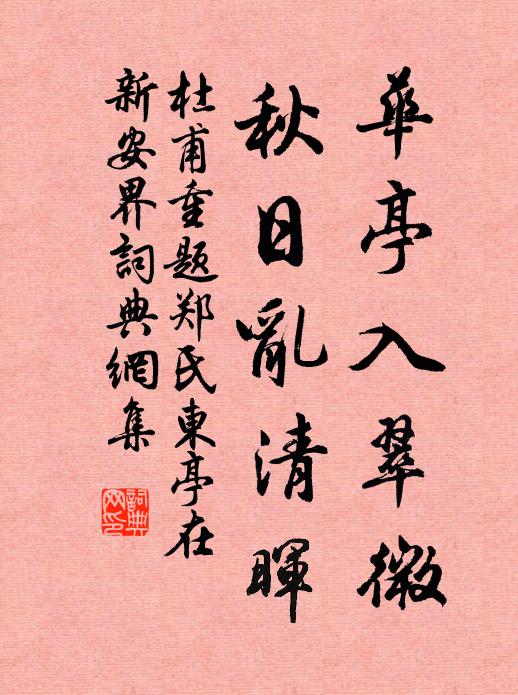 華亭入翠微
秋日亂清暉
杜甫重题郑氏東亭在
新安界詞典網集
詞典网印